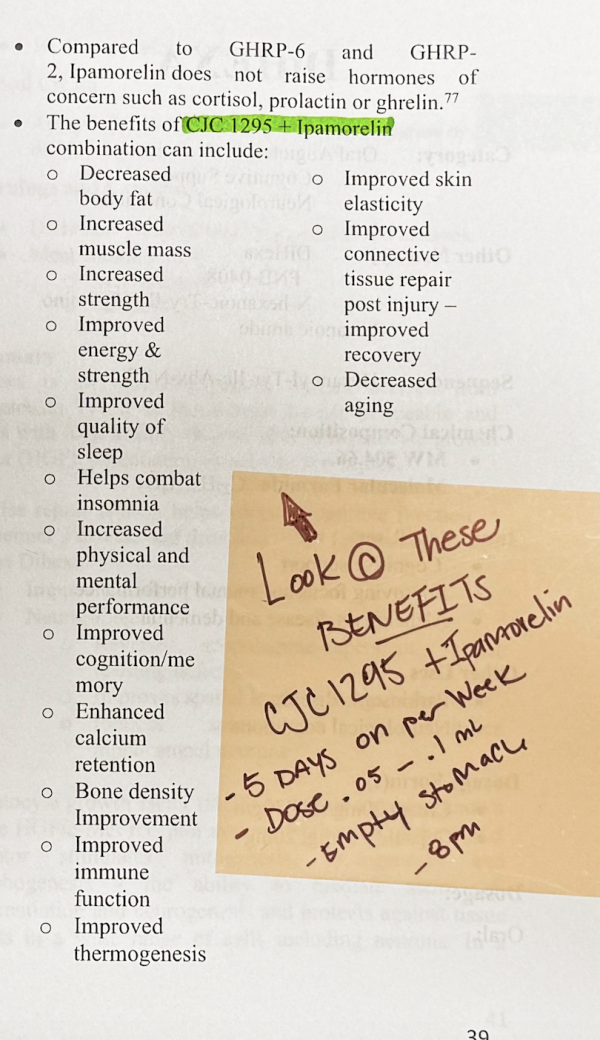 • Compared to GHRP-6 and GHRP-
2, Ipamorelin does not raise hormones of
concern such as cortisol, prolactin or ghrelin.77
• The benefits of CJC 1295 + Ipamorelin
combination can include:
o Decreased
body fat
o Increased
muscle mass
o Increased
strength
o Improved
energy &
strength
o Improved
quality of
sleep
o Helps combat
insomnia
o Increased
physical and
mental
performance
o Improved
cognition/me
mory
o Enhanced
calcium
retention
o Bone density
Improvement
o Improved
immune
function
o Improved
thermogenesis
o Improved skin
elasticity
o Improved
connective
tissue repair
post injury –
improved
recovery
o Decreased
aging
Look @ These
BENEFITS
CJC 1295 + Ipamorelin
- 5 DAYS on per Week
- DOSE .05 - .1 mL
- Empty stomach
- 8pm
39